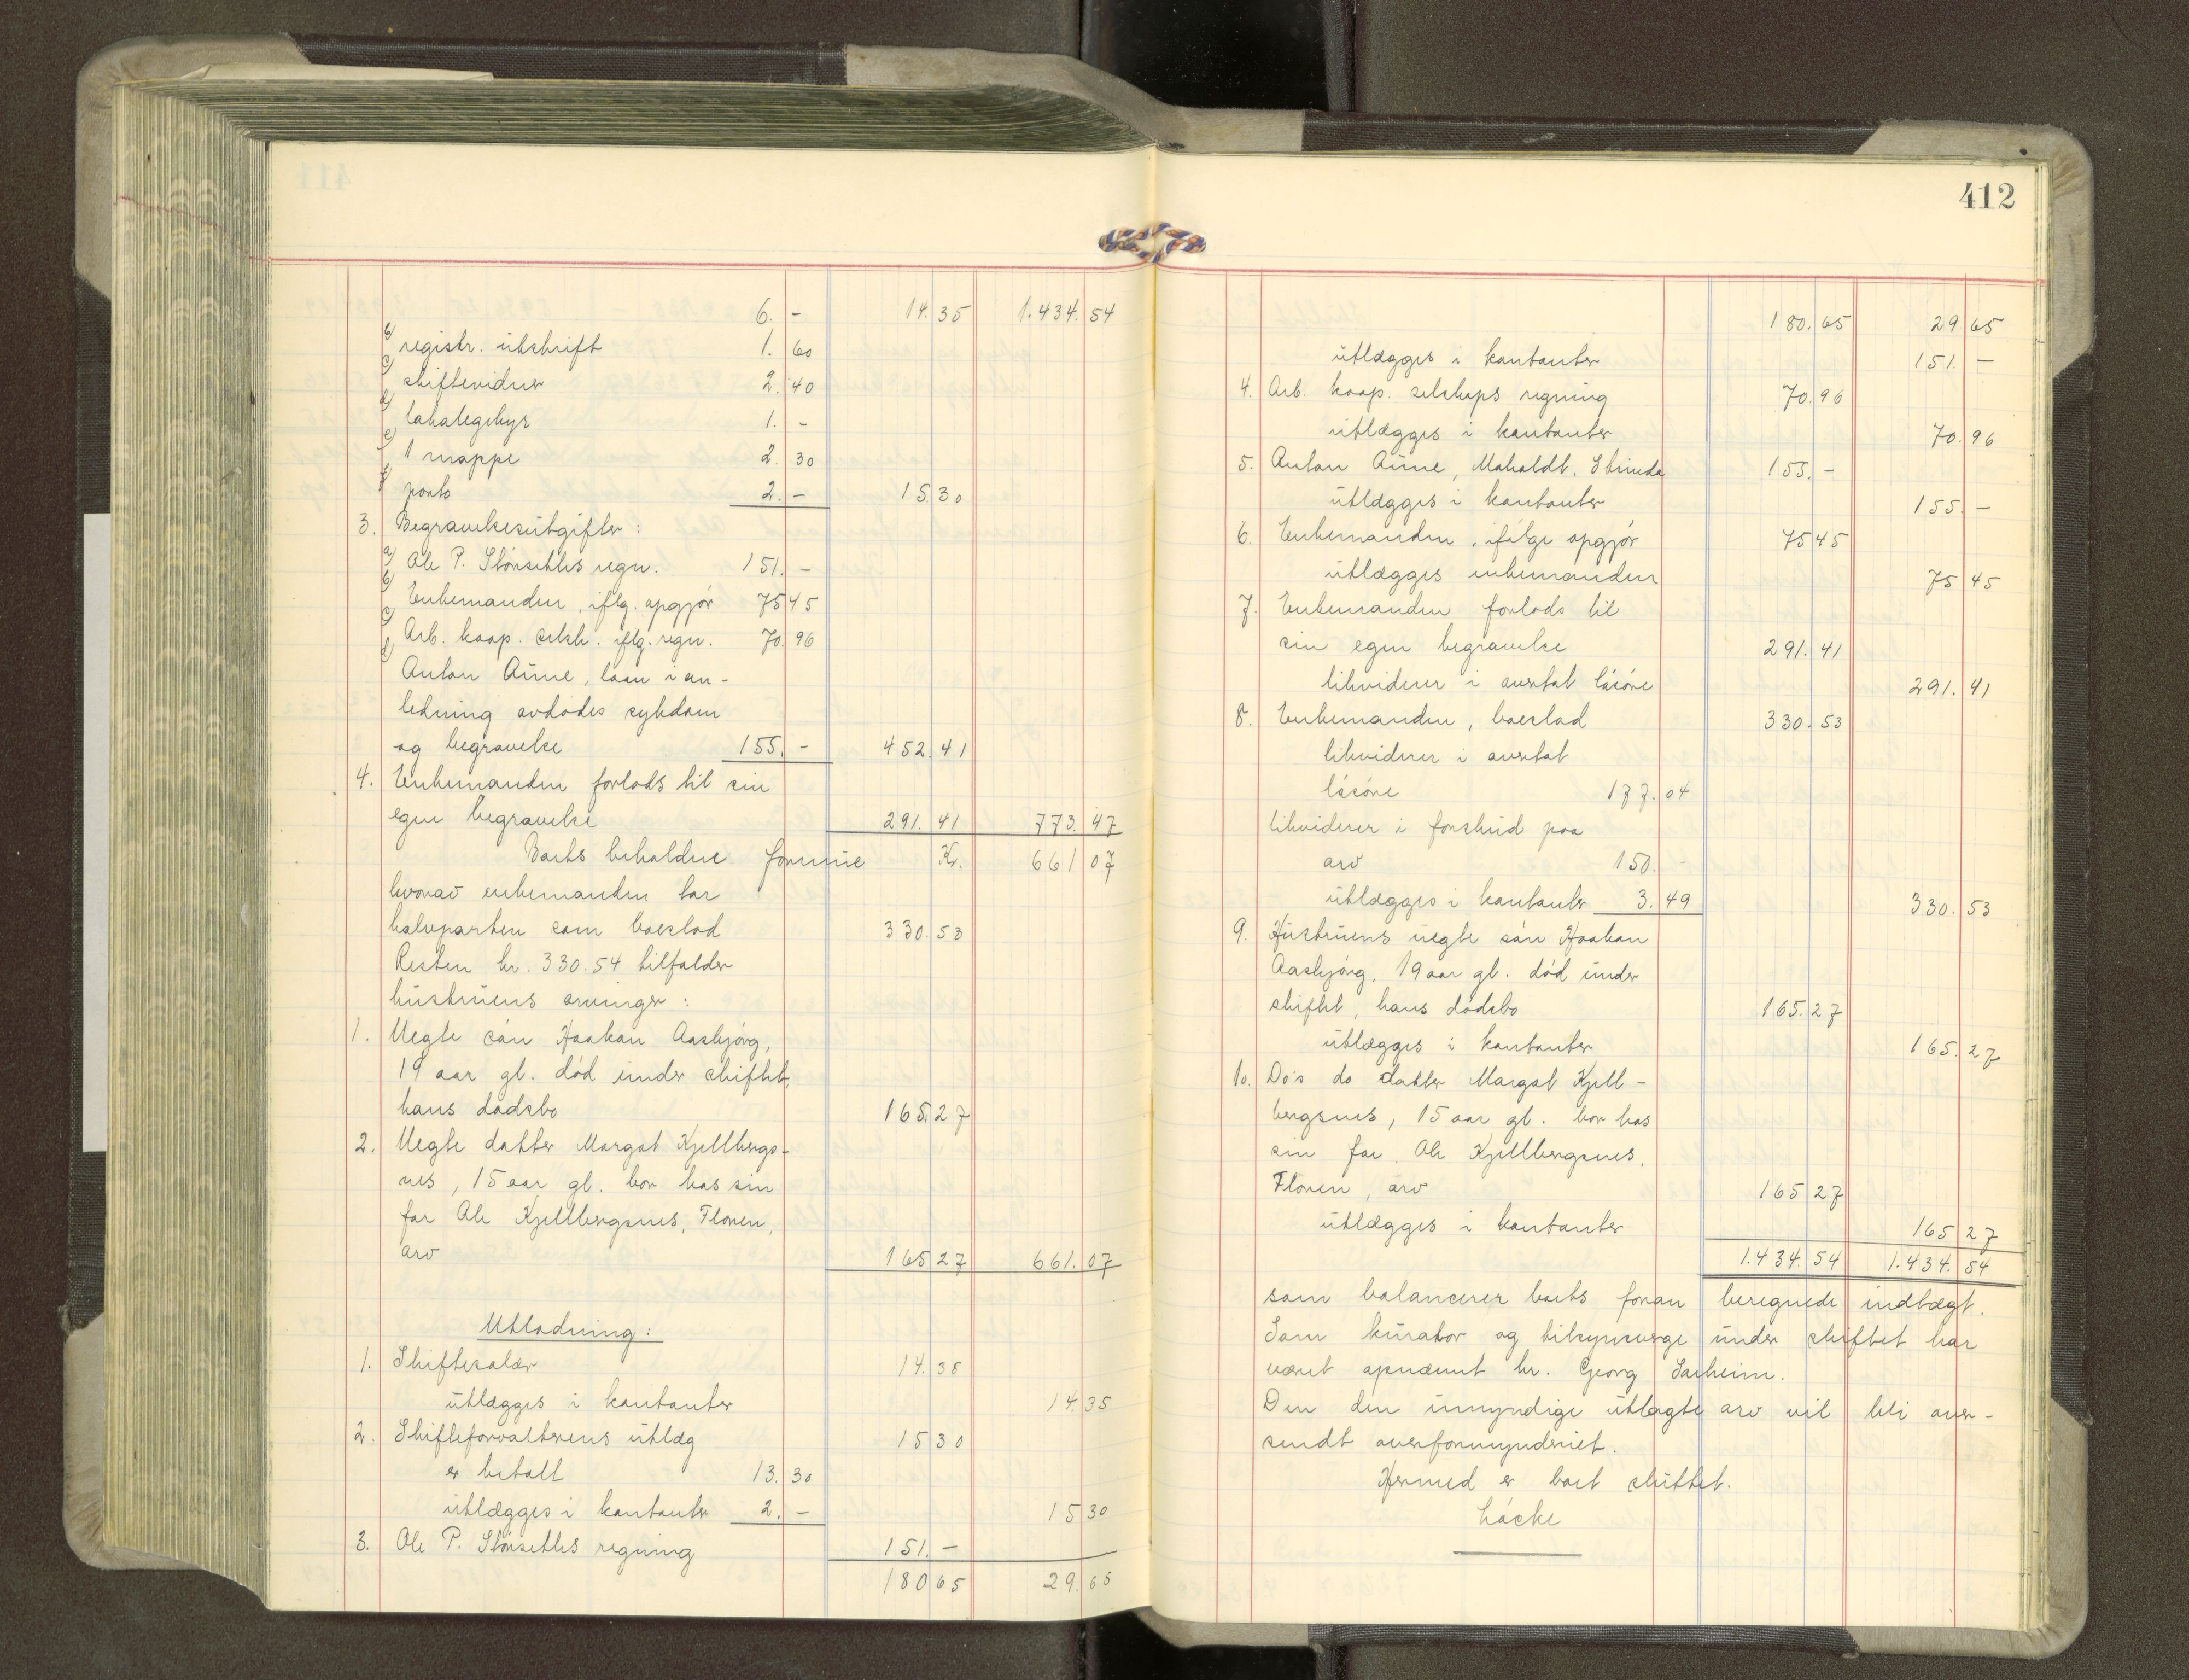 6. - 14.35 1.434.54
b) registr. utskrift 1.60
c) skiftevidner 2.40
d) lokalegebyr 1. -
e) 1 mappe 2.30
f) porto 2. - 15.30
3. Begravelsesutgifter:
a) Ole P. Störseths regn. 151. -
b) Enkemanden, iflg. opgjör 75 45
c) Arb. koop. selsk. iflg. regn. 70.96
d) Anton Aune, laan i an-
ledning avdödes sykdom
og begravelse 155. - 452.41
4. Enkemanden forlods til sin
egen begravelse 291.41 773.47
Boets beholdne formue Kr. 661 07
hvorav enkemanden tar
halvparten som boeslod 330.53
Resten kr. 330.54 tilfalder
hustruens arvinger:
1. Uegte sön Haakon Aasbjörg,
19 aar gl. död under skiftet,
hans dödsbo 165.27
2. Uegte datter Margot Kjellbergs-
nes, 15 aar gl. bor hos sin
far Ole Kjellbergsnes, Floren,
arv 165 27 661.07
Utlodning:
1. Skiftesalær 14.35
utlægges i kontanter 14.35
2. Skifteforvalterens utlæg 15 30
er betalt 13.30
utlægges i kontanter 2. - 15 30
3. Ole P. Störseths regning 151. -
180 65 29.65
412
180.65 29.65
utlægges i kontanter 151. -
4. Arb. koop. selskaps regning 70.96
utlægges i kontanter 70.96
5. Anton Aune, Moholdt, Strinda 155. -
utlægges i kontanter 155. -
6. Enkemanden, ifölge opgjör 75 45
utlægges enkemanden 75 45
7. Enkemanden forlods til
sin egen begravelse 291.41
likviderer i avertat lösöre 291.41
8. Enkemanden, boeslod 330.53
likviderer i avertat
lösöre 177.04
likviderer i forskud paa
arv 150. -
utlægges i kontanter 3.49 330.53
9. Hustruens uegte sön Haakon
Aasbjörg, 19 aar gl. död under
skiftet, hans dödsbo 165.27
utlægges i kontanter 165.27
10. Do's do datter Margot Kjell-
bergsnes, 15 aar gl. bor hos
sin far, Ole Kjellbergsnes,
Floren, arv 165 27
utlægges i kontanter 165 27
1.434.54 1.434.54
som balancerer boets foran beregnede indtægt.
Som kurator og tilsynsverge under skiftet har
været opnævnt hr. Georg Sarheim.
Den den umyndige utlagte arv vil bli over-
sendt overformynderiet.
Hermed er boet sluttet.
Löcke